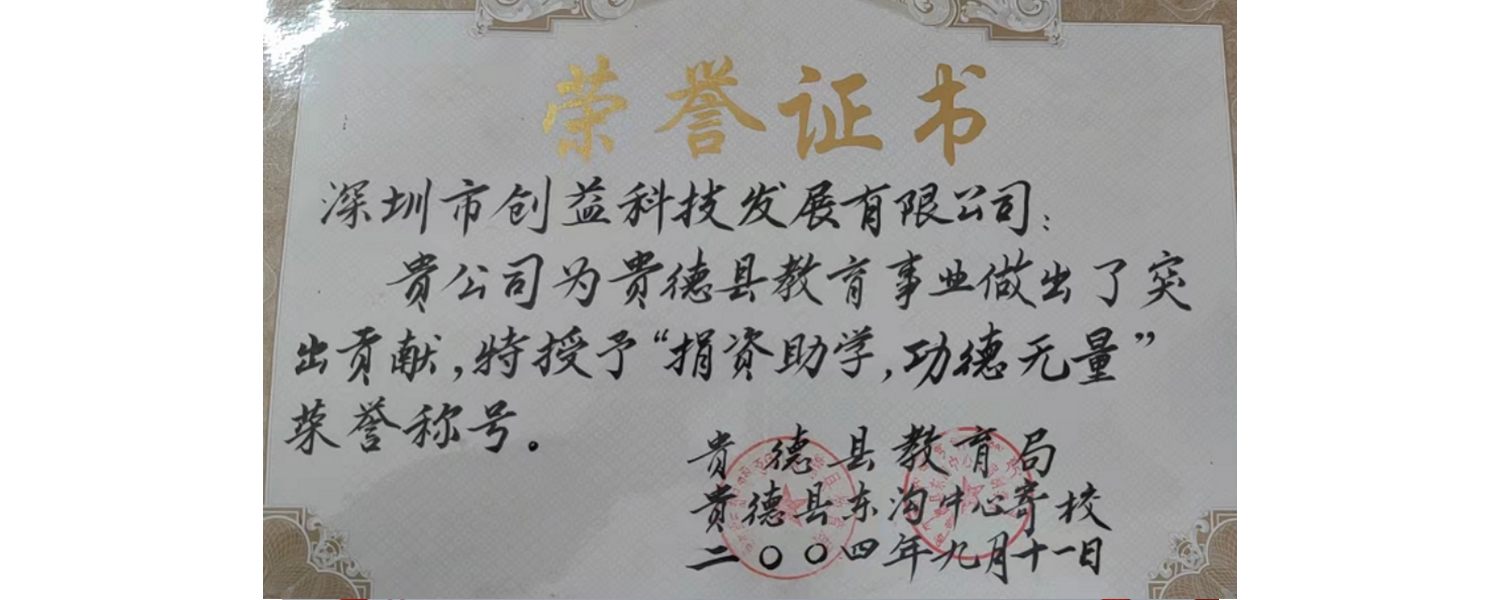 荣誉证书
深圳市创益科技发展有限公司：
贵公司为贵德县教育事业做出了突
出贡献，特授予“捐资助学，功德无量”
荣誉称号。
贵德县教育局
贵德县东沟中心寄校
二〇〇四年九月十一日